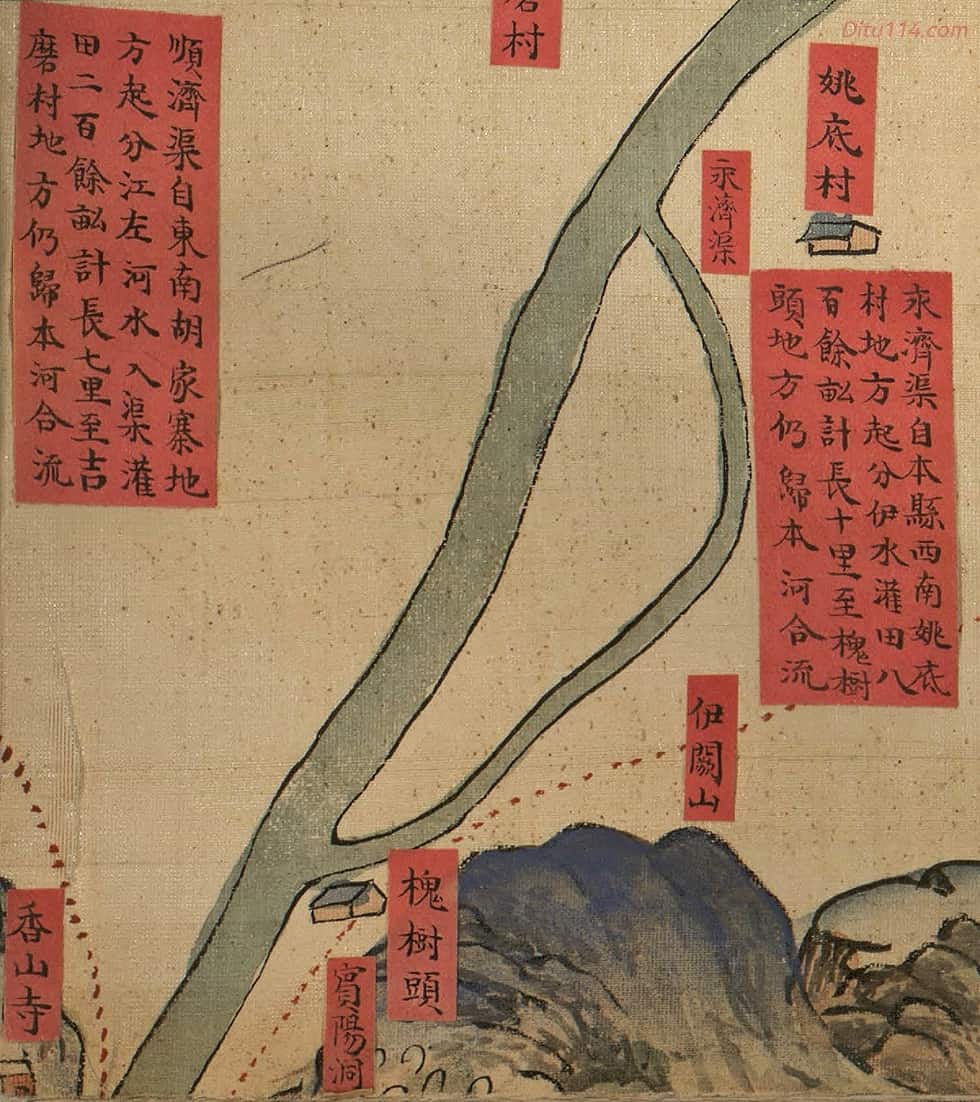 順濟渠自東南胡家寨地
方起分江左河水入渠灌
田二百餘畝計長七里至吉
磨村地方仍歸本河合流
村
Ditu114.com
姚底村
永濟渠
永濟渠自本縣西南姚底
村地方起分伊水灌田八
百餘畝計長十里至槐樹
頭地方仍歸本河合流
伊闕山
槐樹頭
賓陽洞
香山寺